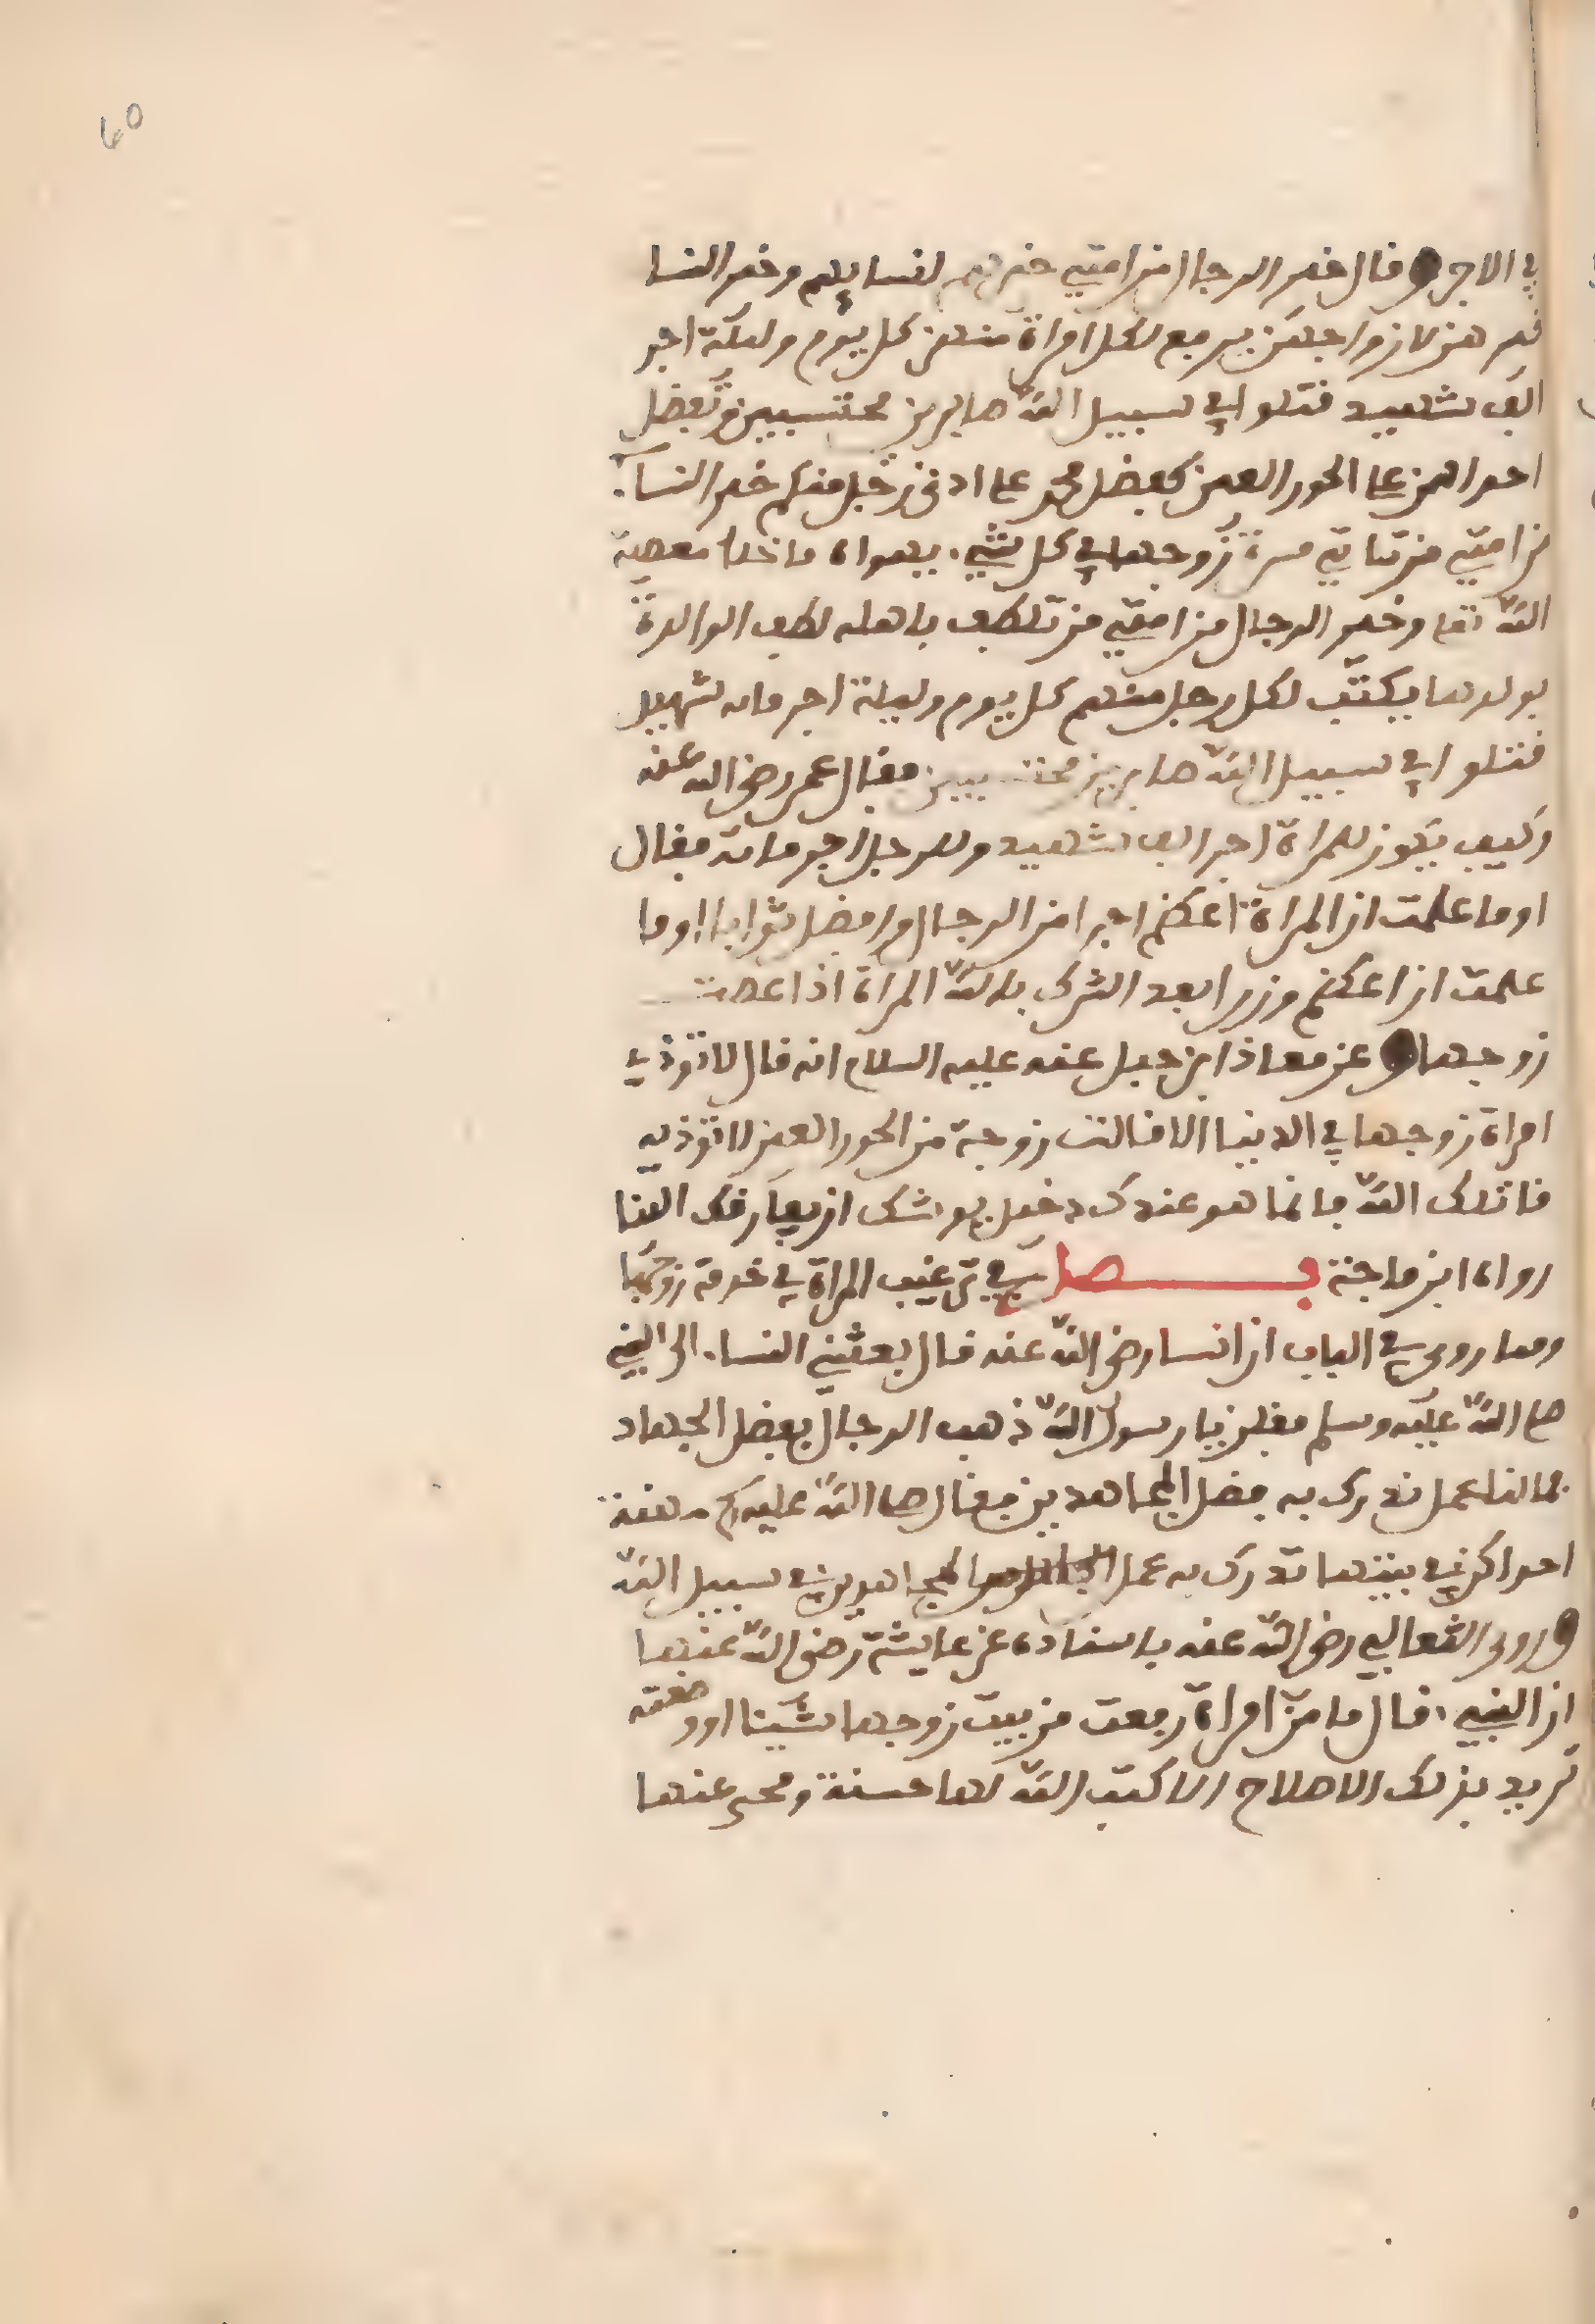 60
في الاجر وقال خير الرجال من امتي خيرهم لنسايهم وخير النسا
خيرهن لازواجهن يرفع لكل امراة منهن كل يوم وليلة اجر
الف شهيد قتلوا في سبيل الله صابرين محتسبين وتفضل
احداهن على الحور العين كفضل محمد على ادنى رجل منكم خير النسآ
من امتي من تاتي مسرة زوجها في كل شيء يهواه ما خلا معصية
الله تعا وخير الرجال من امتي من تلطف باهله لطف الوالدة
بولدها يكتب لكل رجل منهم كل يوم وليلة اجر ماىه شهيد
قتلوا في سبيل الله صابرين محتسبين فقال عمر رضي الله عنه
وكيف يكون للمراة اجر الف شهيد وللرجل اجر مائة فقال
اوما علمت ان المراة اعظم اجرا من الرجال وافضل ثوابا اوما
علمت ان اعظم وزرا بعد الشرك بالله المراة اذا عصت
زوجها وعن معاذ ابن جبل عنه عليه السلام انه قال لا توذي
امراة زوجها في الدنيا الا قالت زوجة من الحور العين لا توذيه
قاتلك الله فانما هو عندك دخيل يوشك ان يفارقك الينا
رواه ابن ماجة فصل في ترغيب المراة في خدمة زوجها
ومما روى في الباب ان انسا رضي الله عنه قال بعثني النسا الى النبي
صلى الله عليه وسلم فقلن يا رسول الله ذهب الرجال بفضل الجهاد
فما لنا عمل ندرك به فضل المجاهدين فقال صلى الله عليه وسلم مهنة
احداكن في بيتها تدرك به عمل المجاهدين في سبيل الله
وروى الثعالبي رضي الله عنه باسناده عن عايشة رضي الله عنها
ان النبي قال ما من امراة رفعت من بيت زوجها شيئا او وضعته
تريد بذلك الاصلاح الا كتب الله لها حسنة ومحى عنها